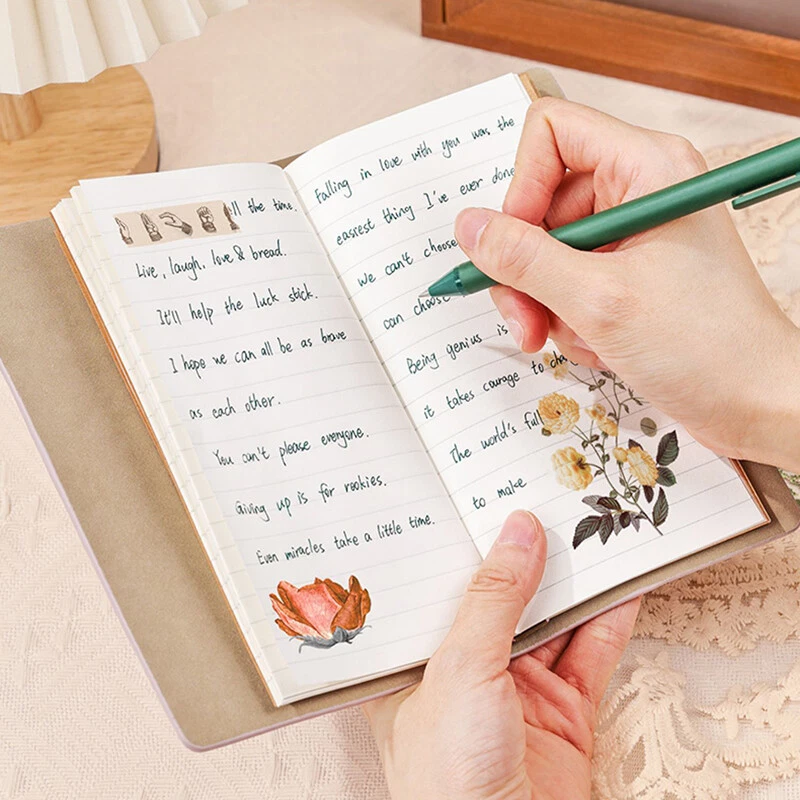 ll the time.
Live, laugh, love & bread.
It'll help the luck stick.
I hope we can all be as brave
as each other.
You can't please everyone.
Giving up is for rookies.
Even miracles take a little time.
Falling in love with you was the
easiest thing I've ever done
We can't choose
can choose
Being genius is
it takes courage to cha
The world's full
to make